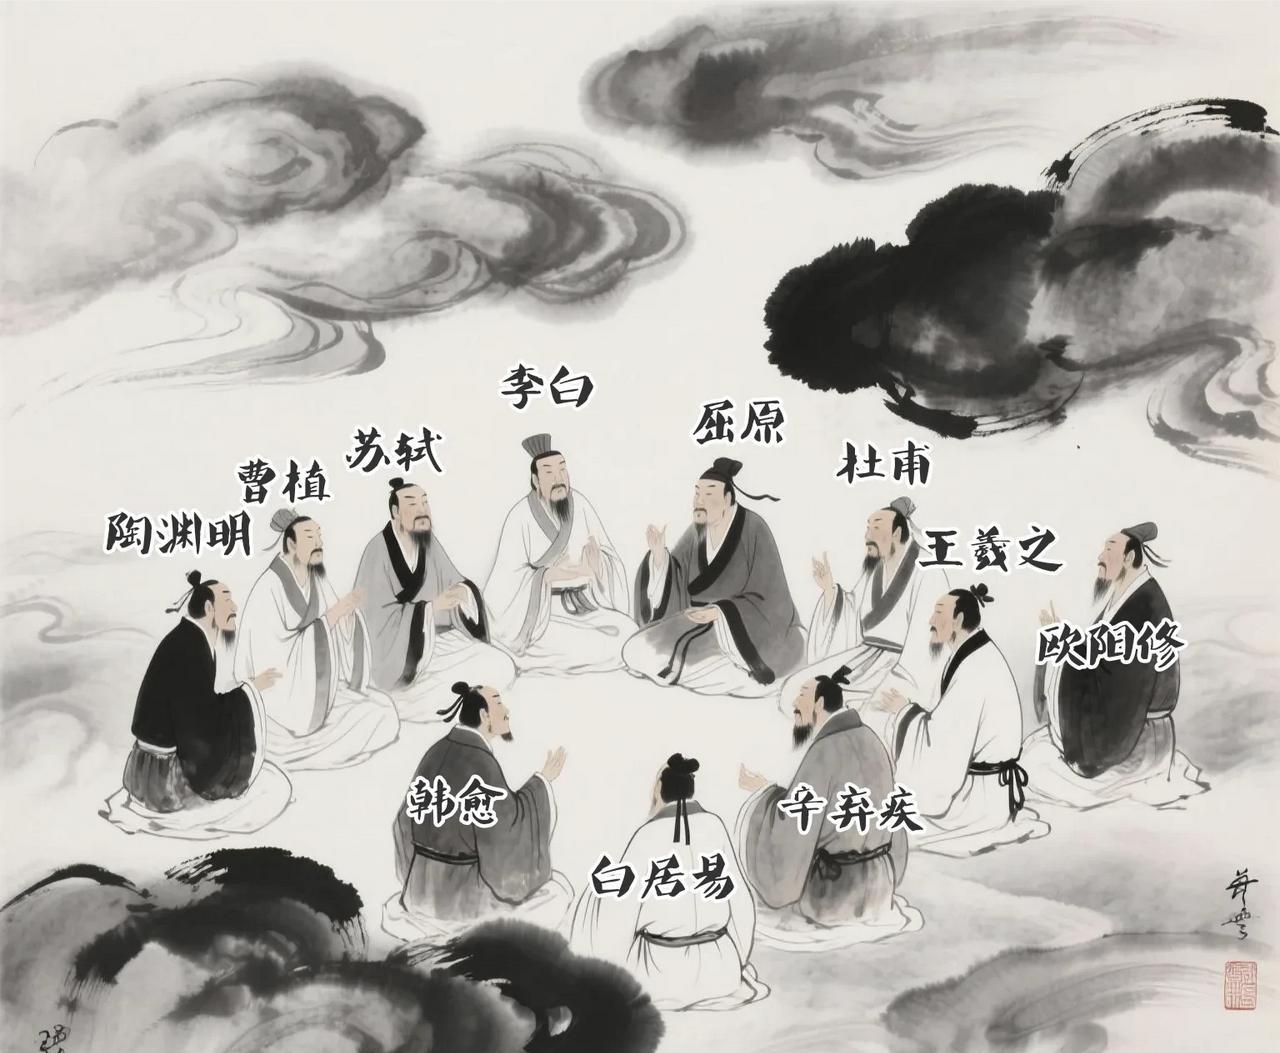 李白
屈原
苏轼
杜甫
曹植
陶渊明
王羲之
欧阳修
韩愈
辛弃疾
白居易